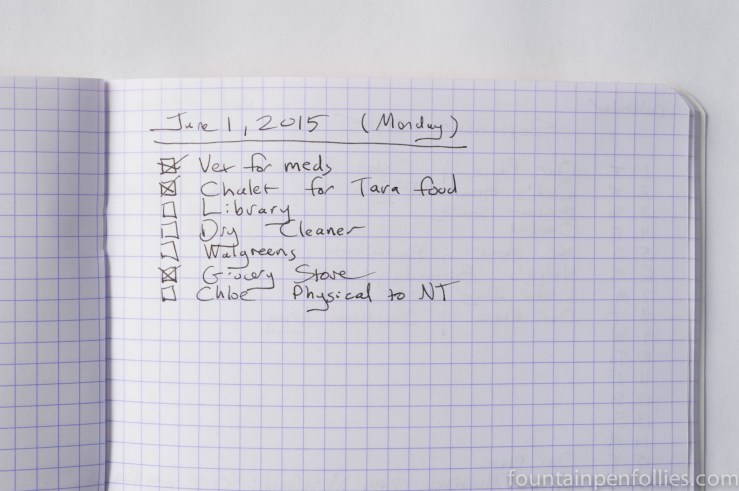 June 1, 2015 (Monday)
☒ Vet for meds
☒ Chalet for Tara food
☐ Library
☐ Dry Cleaner
☐ Walgreens
☒ Grocery Store
☐ Chloe Physical to NT
fountainpenfollies.com